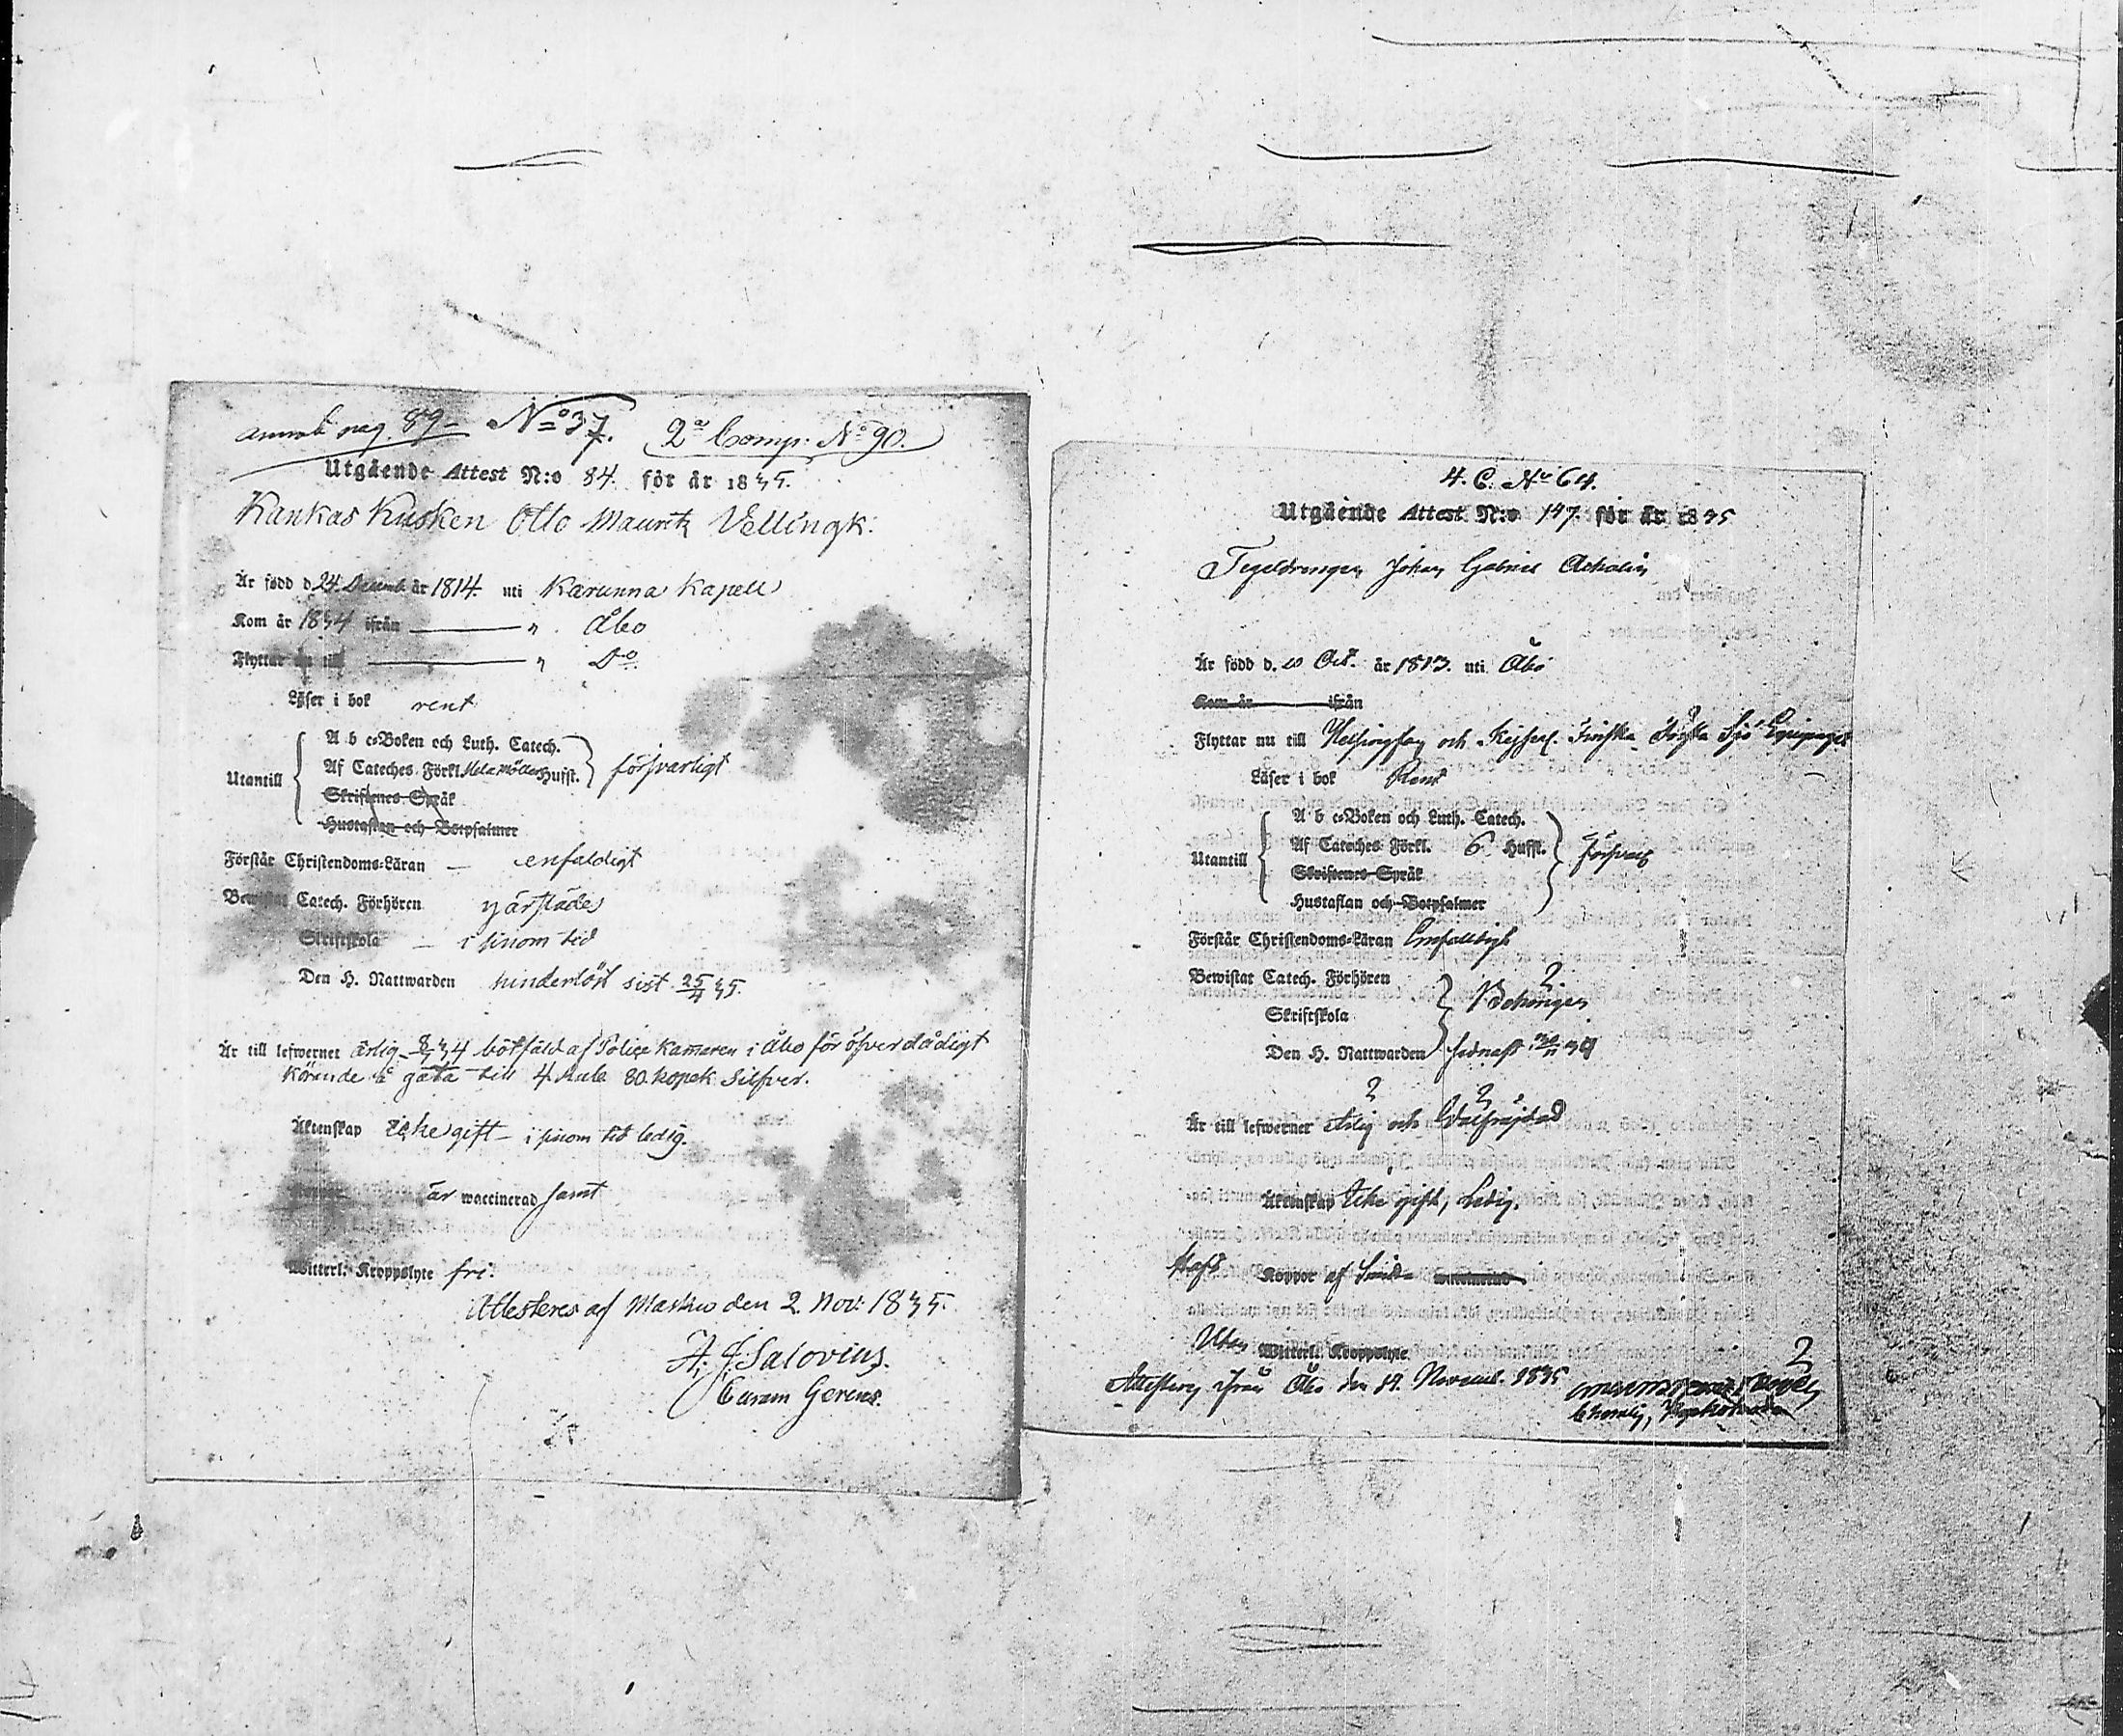 pag. 89 — No 37. 2a Comp: No 90.
Utgående Attest N:o 84. för år 1835.
Kankas Kusken Otto Mauritz Vellingk.
Är född d. 24 Decemb. år 1814. uti Karunna Kapell
Kom år 1834 ifrån — " Åbo
Flyttar nu till — " Do
Läser i bok rent
Utantill
A b c-Boken och Luth. Catech.
Af Cateches. Förkl. Hufst. försvarligt
Skriftenes Språk
Hustaflan och Botpsalmer
Förstår Christendoms-Läran — enfaldigt
Bewistat Catech. Förhören
Skriftskola — i sinom tid
Den H. Nattwarden hinderlöst sist 25/4 35.
Är till lefwernet ärlig — 34 bötfäld af Police Kamaren i Åbo för öfverdådigt
körande å gata till 4 Rub. 80 kopek Silfver.
Äktenskap icke gift — i sinom tid ledig.
är waccinerad samt
Witterl. Kroppslyte fri.
Attesteras af Masku den 2. Nov: 1835.
H. J. Salovius.
Curam Gerens.
4. C. No 64.
Utgående Attest N:o 147. för år 1835
Tegeldrengen Johan Gabriel
Är född d. 10 Oct. år 1813. uti Åbo
Kom år — ifrån
Flyttar nu till Helsingfors och Kejserl. Finska Första Sjö Equipaget
Läser i bok Rent
Utantill
A b c-Boken och Luth. Catech.
Af Cateches Förkl. 6 Hufst. Försvarl
Skriftenes Språk
Hustaflan och Botpsalmer
Förstår Christendoms-Läran Enfaldigt
Bewistat Catech. Förhören
Skriftskola
Den H. Nattwarden sednast
Är till lefwernet Ärlig och Wälfräjdad
Äktenskap Icke gift, Ledig.
Haft Koppor af
Utan Witterl. Kroppslyte
Åbo den 14. Novemb. 1835